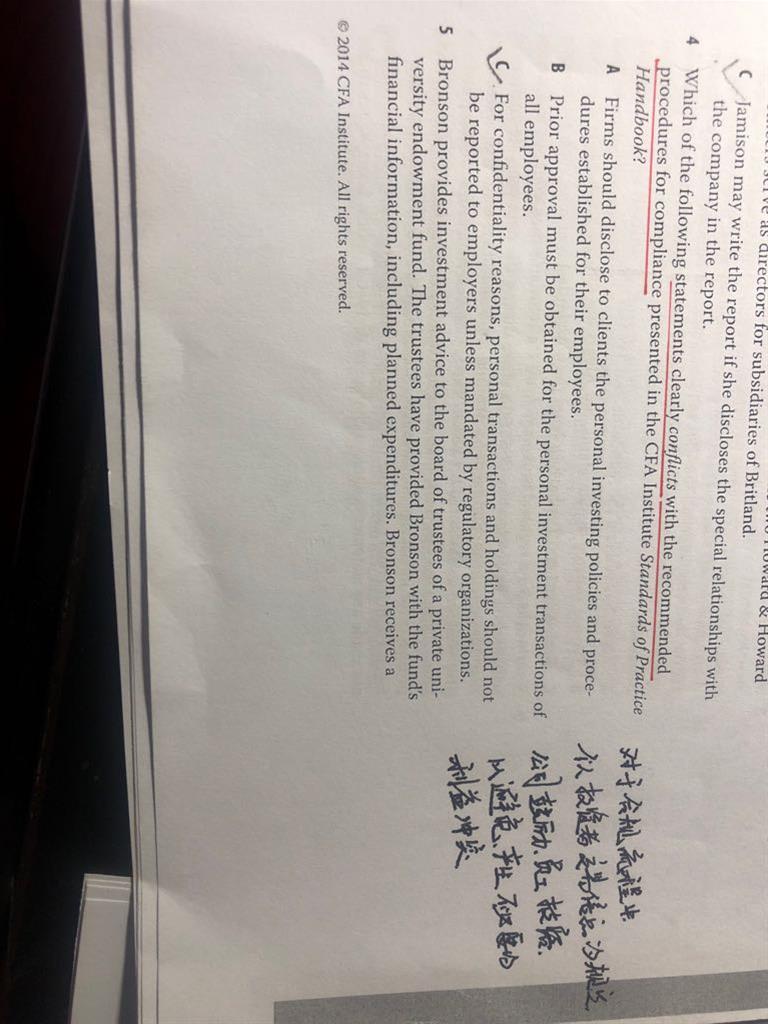 Howard & Howard
serve as directors for subsidiaries of Britland.
C Jamison may write the report if she discloses the special relationships with
the company in the report.
4 Which of the following statements clearly conflicts with the recommended
procedures for compliance presented in the CFA Institute Standards of Practice
Handbook?
A Firms should disclose to clients the personal investing policies and proce-
dures established for their employees.
B Prior approval must be obtained for the personal investment transactions of
all employees.
C For confidentiality reasons, personal transactions and holdings should not
be reported to employers unless mandated by regulatory organizations.
5 Bronson provides investment advice to the board of trustees of a private uni-
versity endowment fund. The trustees have provided Bronson with the fund's
financial information, including planned expenditures. Bronson receives a
© 2014 CFA Institute. All rights reserved.
对于合规流程中
个人投资者交易信息
公司鼓励员工投资.
以避免产生不必要的
利益冲突